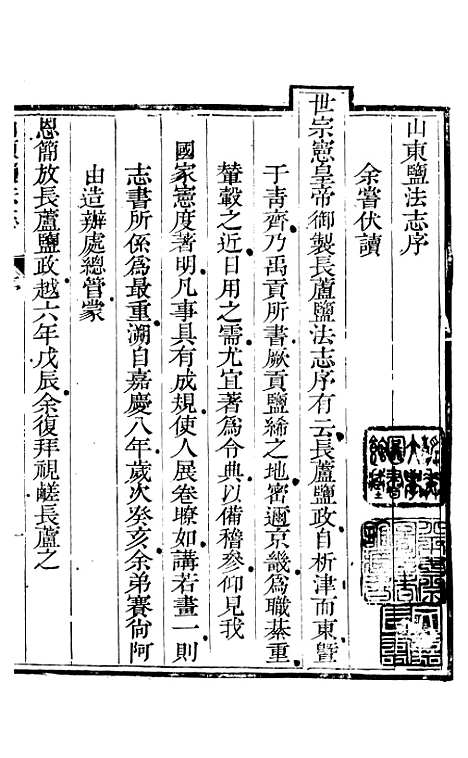 山東鹽法志序
余嘗伏讀
世宗憲皇帝御製長蘆鹽法志序有云長蘆鹽政自析津而東暨
于青齊乃禹貢所書厥貢鹽絺之地密邇京畿為職綦重
輦轂之近日用之需尤宜著為令典以備稽參仰見我
國家憲度著明凡事具有成規使人展卷瞭如講若畫一則
志書所係為最重溯自嘉慶八年歲次癸亥余弟賽尙阿
由造辦處總管蒙
恩簡放長蘆鹽政越六年戊辰余復拜視鹺長蘆之